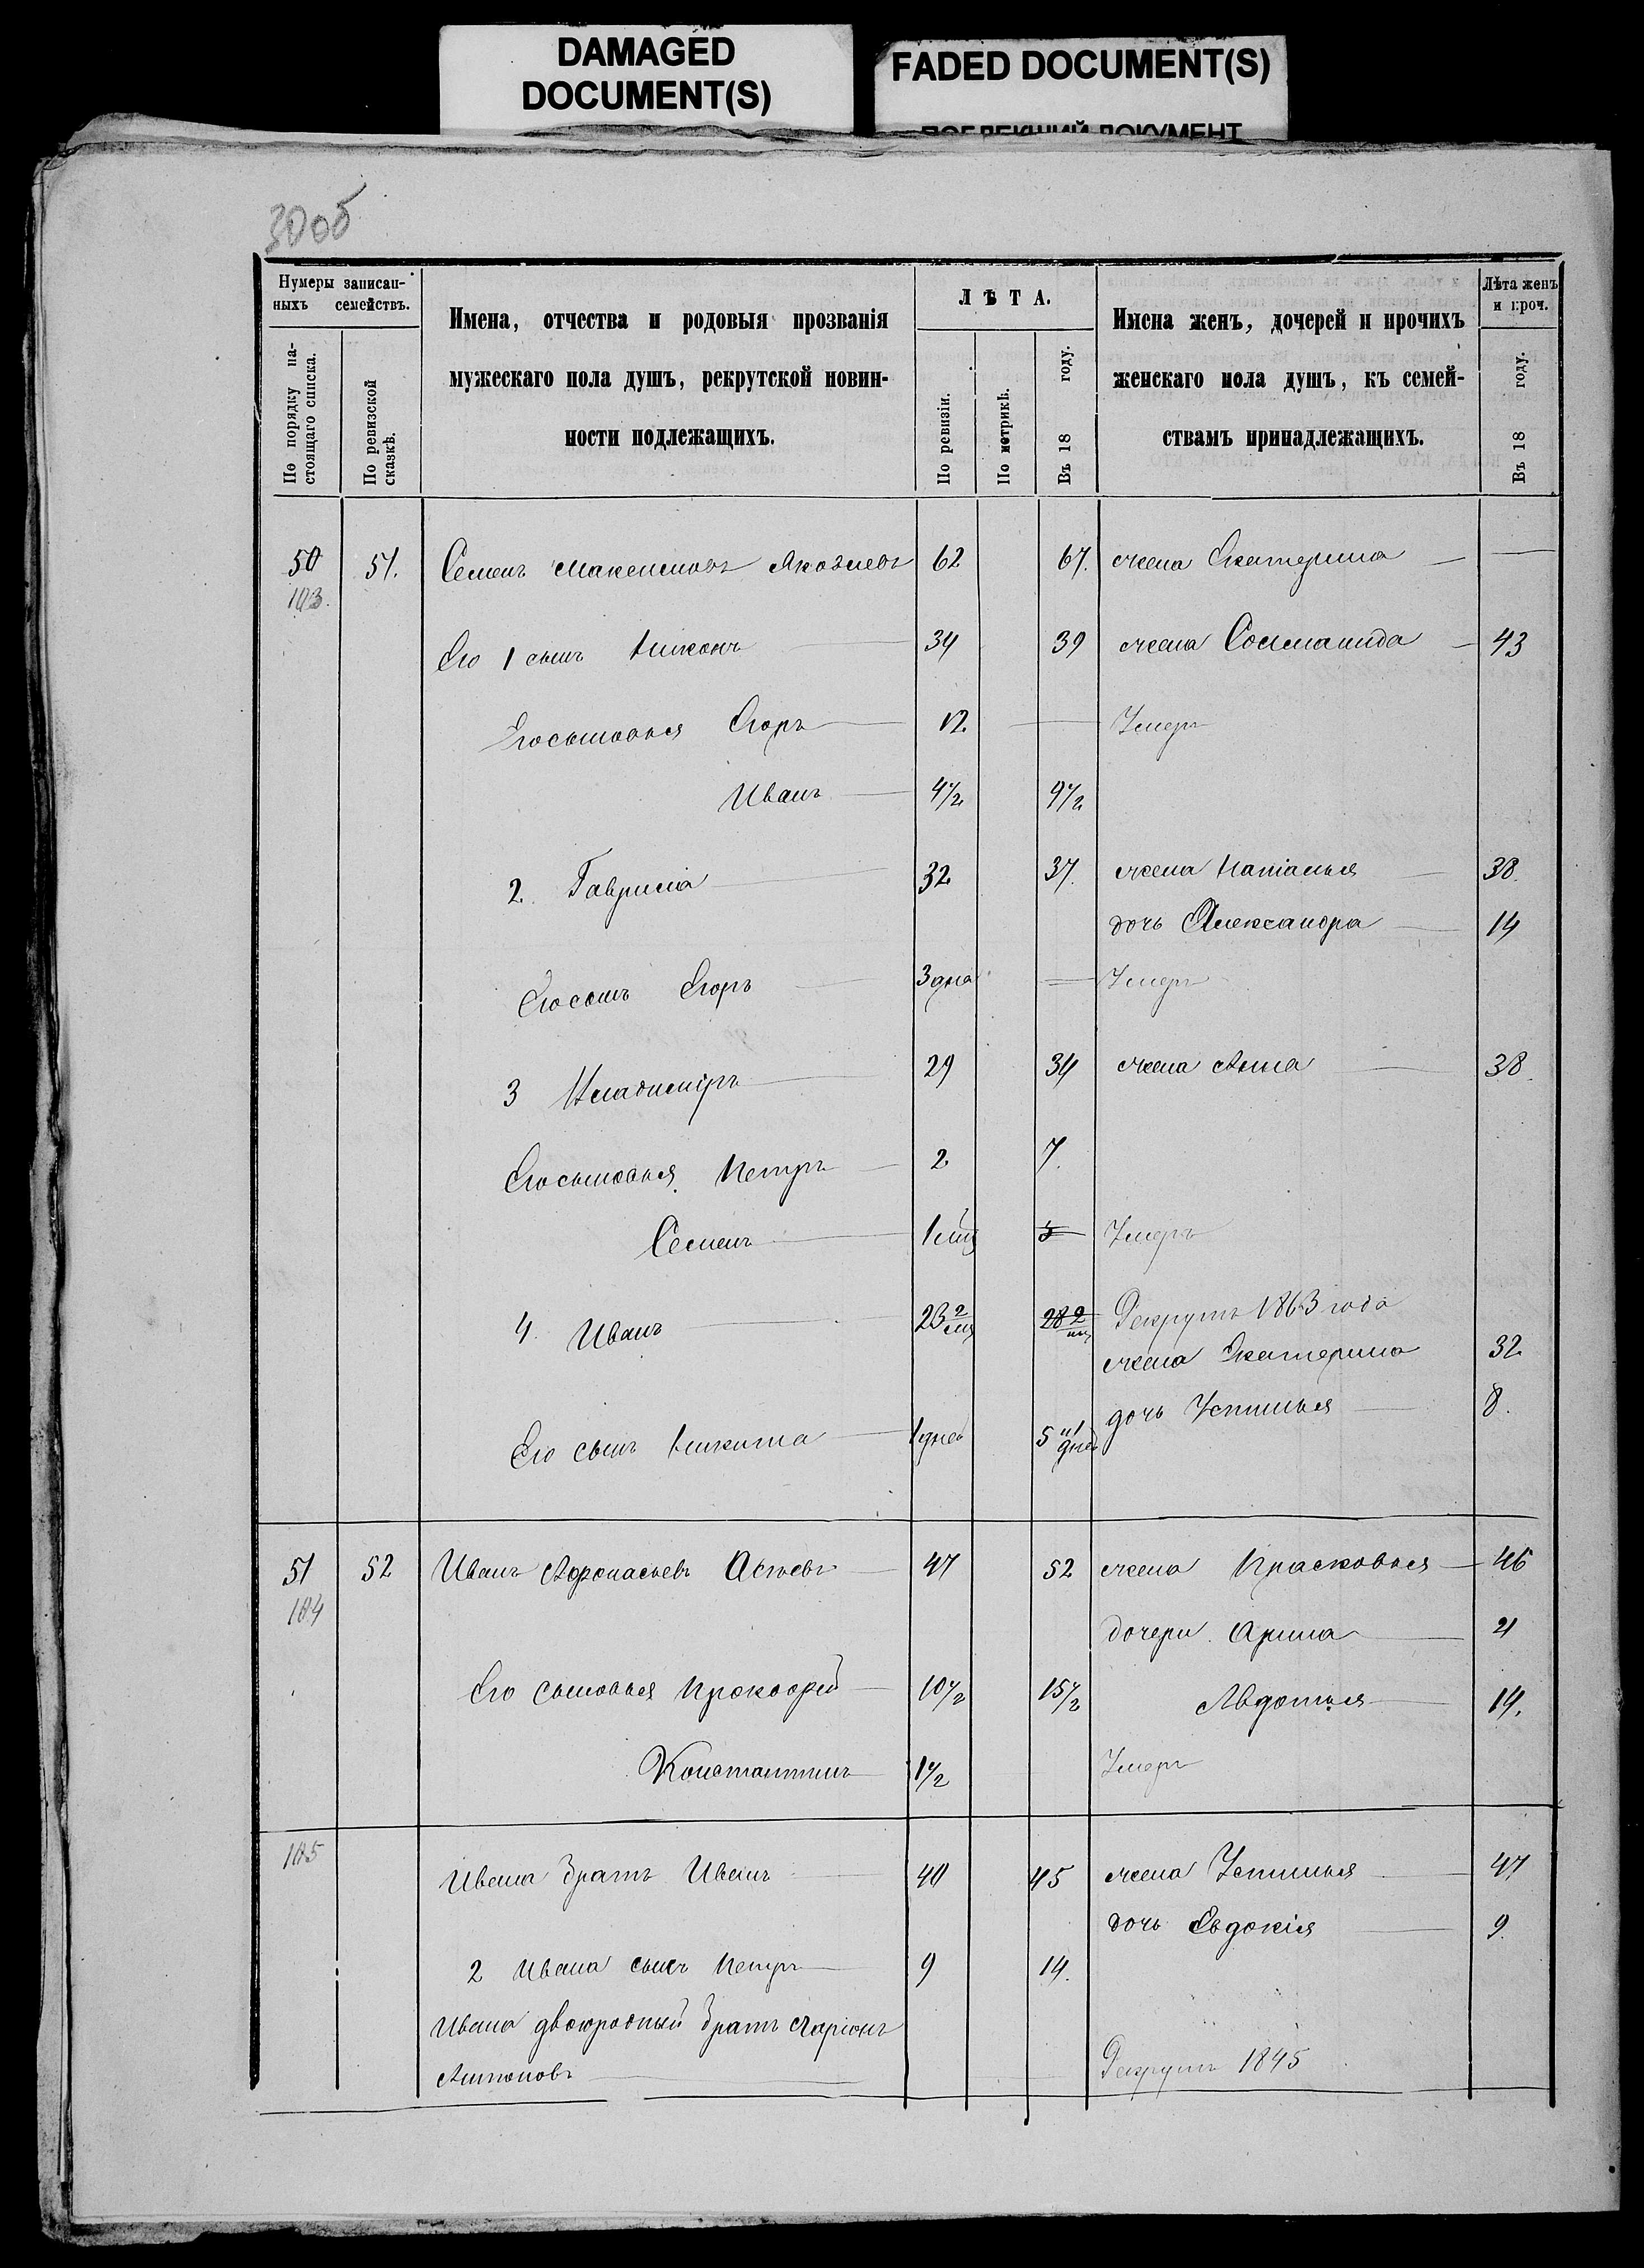 DAMAGED
DOCUMENT(S)
FADED DOCUMENT(S)
30об
Нумеры записан-
ныхъ семействъ.
По порядку на-
стоящаго списка.
По ревизской
сказкѣ.
Имена, отчества и родовыя прозванія
мужескаго пола душъ, рекрутской повин-
ности подлежащихъ.
ЛѢТА.
По ревизіи.
По метрикѣ.
Въ 18 году.
Имена женъ, дочерей и прочихъ
женскаго пола душъ, къ семей-
ствамъ принадлежащихъ.
Лѣта женъ
и проч.
Въ 18 году.
50 51. Семенъ Максимовъ Яковлевъ 62 67. жена Екатерина —
103.
Его 1 сынъ Никонъ 34 39 жена Соломанида 43
Его сыновья Егоръ 12 — Умеръ
Иванъ 4 1/2 9 1/2
2. Гаврила 32 37. жена Наталья 38.
дочь Александра 14
Его сынъ Егоръ 3 дня — Умеръ
3 Владиміръ 29 34 жена Анна 38.
Его сыновья Петръ 2 7.
Семенъ 1 мѣц 5 Умеръ
4. Иванъ 23 2/мц 28 2/мц Рекрутъ 1863 года
жена Екатерина 32
дочь Устинья 8.
Его сынъ Никита дней 5 дней
51 52 Иванъ Афонасьевъ 47 52 жена Прасковья 46
104
дочери Арина 21
Его сыновья Прокофій 10 1/2 15 1/2 Авдотья 14.
Константинъ 1 1/2 Умеръ
105
Ивана братъ Иванъ 40 45 жена Устинья 47
дочь Евдокія 9.
2 Ивана сынъ Петръ 9 14.
Ивана двоюродный братъ Ларіонъ
Антоновъ Рекрутъ 1845